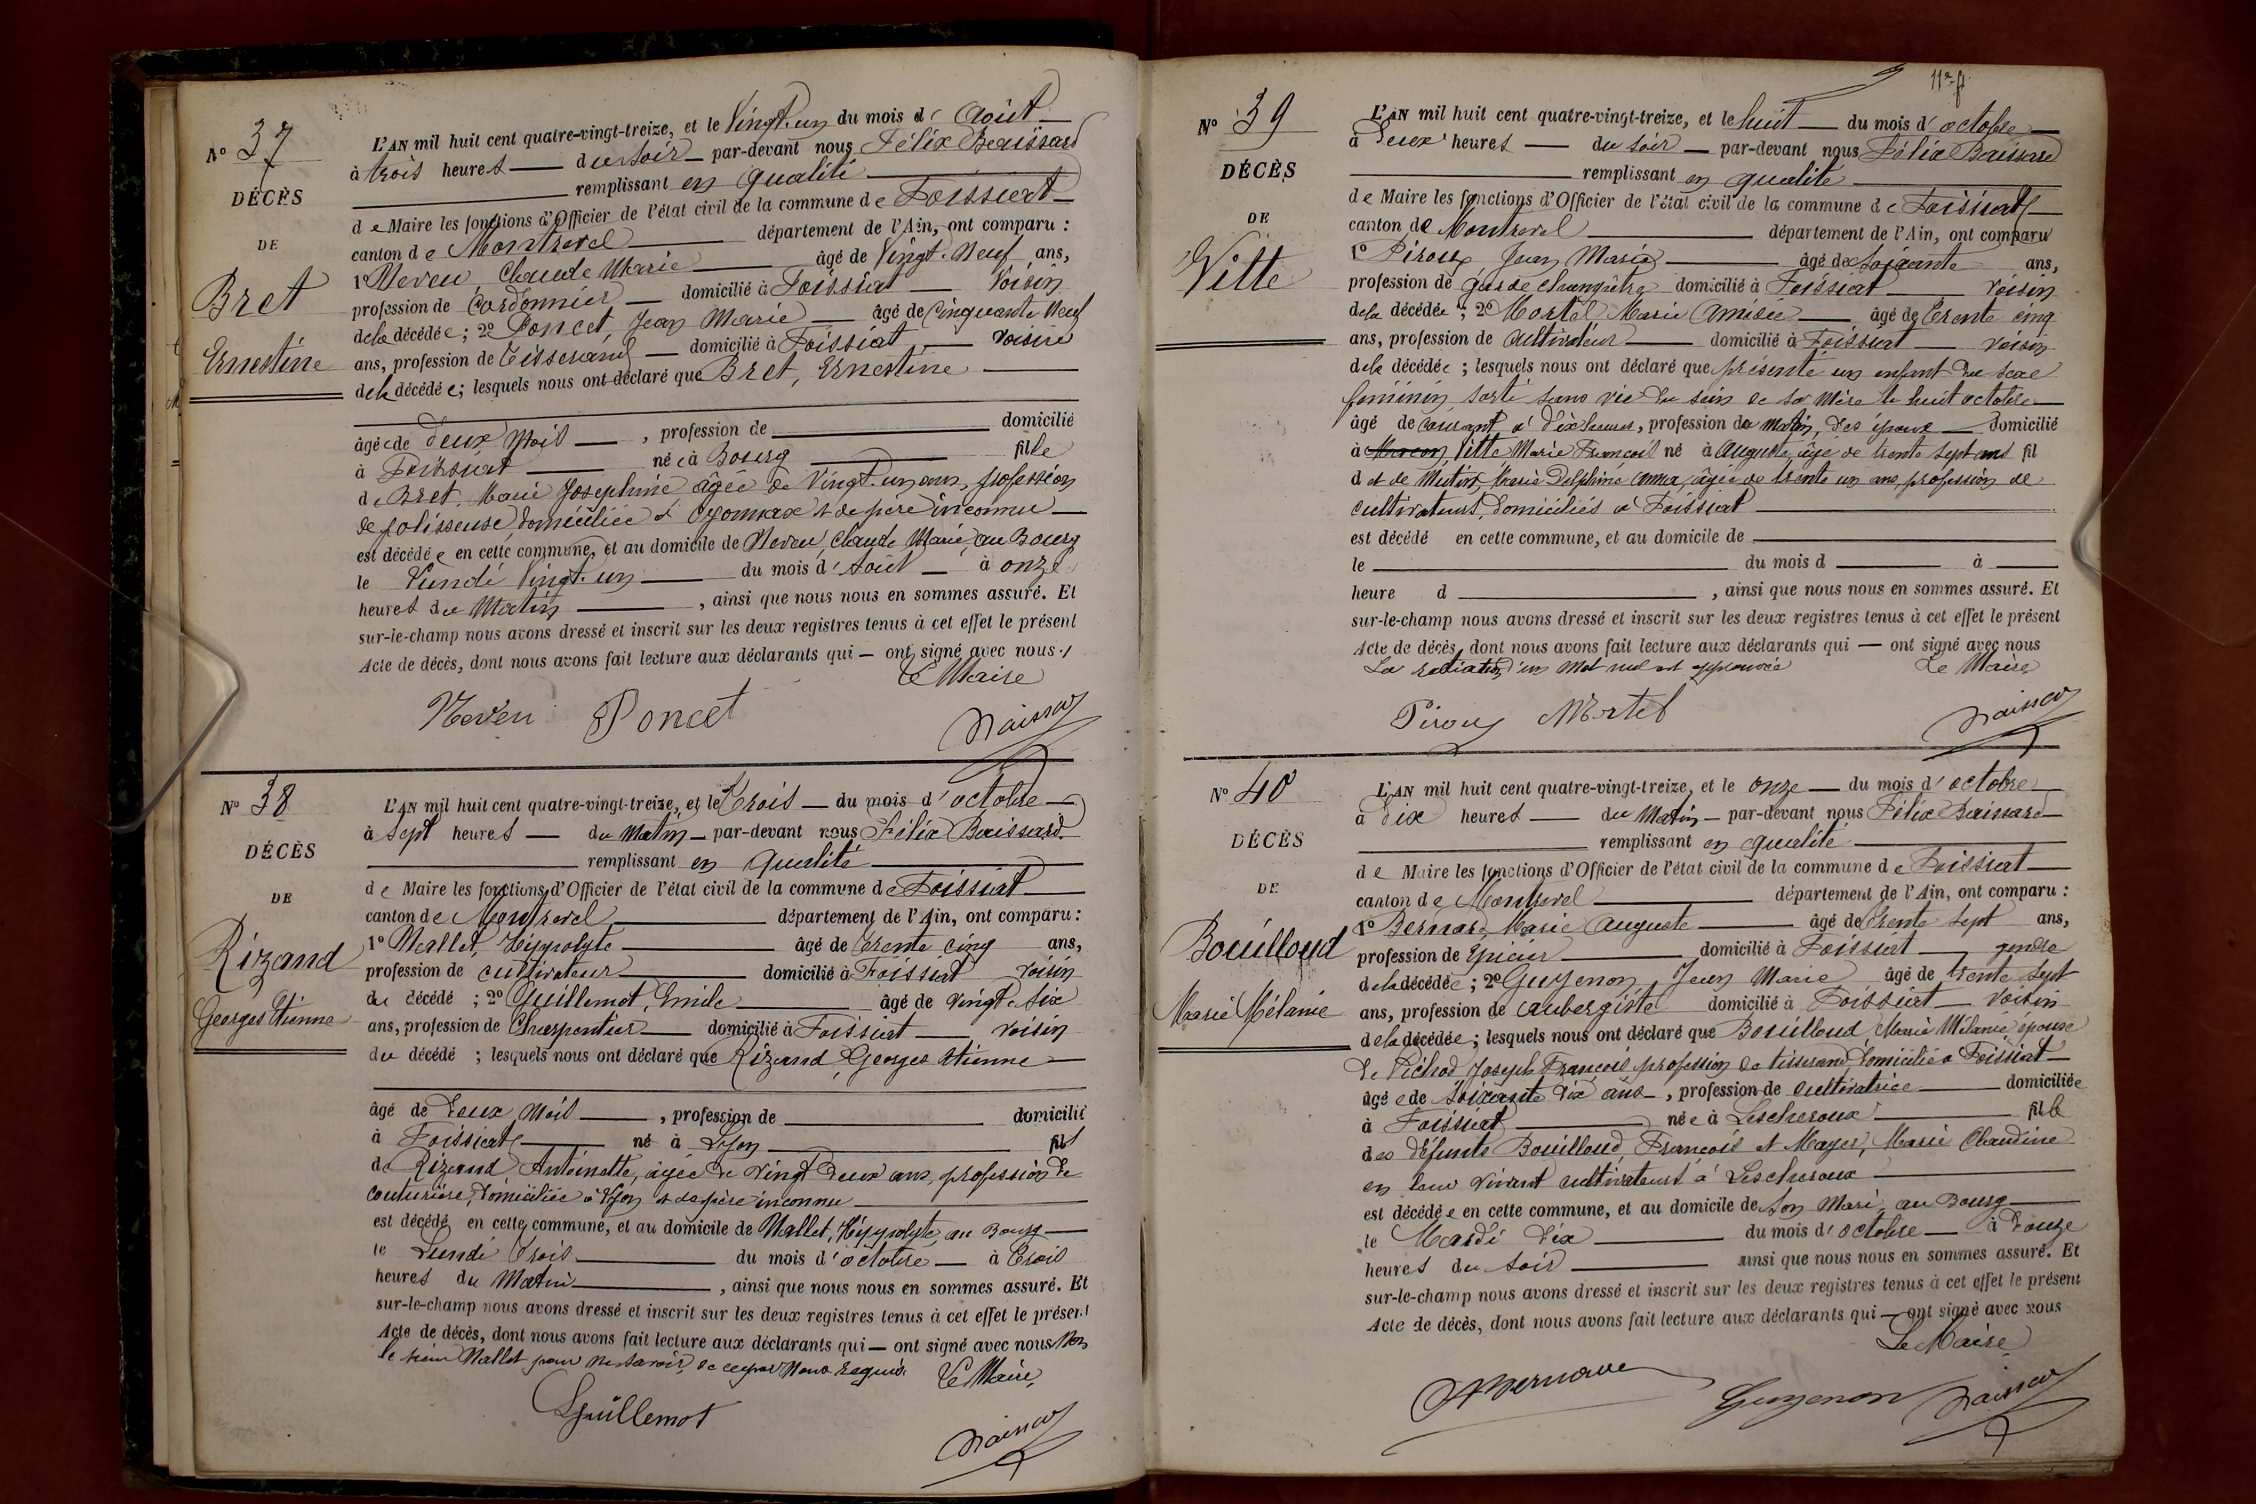 N° 37
DÉCÈS
DE
Bret
Ernestine
L'AN mil huit cent quatre-vingt-treize, et le Vingt-un du mois d'Août
à trois heures du soir par-devant nous Félix Baissard
remplissant en qualité
de Maire les fonctions d'Officier de l'état civil de la commune de Foissiat
canton de Montrevel département de l'Ain, ont comparu :
1° Neveu Claude Marie âgé de Vingt-Neuf ans,
profession de Cordonnier domicilié à Foissiat Voisin
de la décédée ; 2° Poncet, Jean Marie âgé de Cinquante Neuf
ans, profession de Tisserand domicilié à Foissiat Voisin
de la décédée ; lesquels nous ont déclaré que Bret, Ernestine
âgée de deux mois , profession de domicilié
à Foissiat née à Bourg fille
de Bret, Marie Joséphine âgée de Vingt-un ans, profession
de polisseuse domiciliée à Oyonnax et de père inconnu
est décédée en cette commune, et au domicile de Neveu, Claude Marie, au Bourg
le Lundi Vingt-un du mois d'Août à onze
heures du Matin , ainsi que nous nous en sommes assuré. Et
sur-le-champ nous avons dressé et inscrit sur les deux registres tenus à cet effet le présent
Acte de décès, dont nous avons fait lecture aux déclarants qui — ont signé avec nous
Le Maire
Neveu Poncet Baissard
N° 38
DÉCÈS
DE
Rizand
Georges Etienne
L'AN mil huit cent quatre-vingt-treize, et le Trois du mois d'octobre
à Sept heures du Matin par-devant nous Félix Baissard
remplissant en qualité
de Maire les fonctions d'Officier de l'état civil de la commune de Foissiat
canton de Montrevel département de l'Ain, ont comparu :
1° Mallet, Hyppolyte âgé de Trente cinq ans,
profession de cultivateur domicilié à Foissiat voisin
du décédé ; 2° Guillemot, Emile âgé de vingt six
ans, profession de Charpentier domicilié à Foissiat voisin
du décédé ; lesquels nous ont déclaré que Rizand, Georges Etienne
âgé de Deux Mois , profession de domicilié
à Foissiat né à Lyon fils
de Rizand Antoinette, âgée de vingt deux ans, profession de
couturière, domiciliée à Lyon et de père inconnu
est décédé en cette commune, et au domicile de Mallet, Hyppolyte, au Bourg
le Lundi Trois du mois d'octobre à Trois
heures du Matin , ainsi que nous nous en sommes assuré. Et
sur-le-champ nous avons dressé et inscrit sur les deux registres tenus à cet effet le présent
Acte de décès, dont nous avons fait lecture aux déclarants qui — ont signé avec nous Non
le sieur Mallet pour ne savoir, de ce par Nous requis.
Le Maire,
Guillemot
Baissard
11e f.
N° 39
DÉCÈS
DE
Vitte
L'AN mil huit cent quatre-vingt-treize, et le huit du mois d'octobre
à Deux heures du soir par-devant nous Félix Baissard
remplissant en qualité
de Maire les fonctions d'Officier de l'état civil de la commune de Foissiat
canton de Montrevel département de l'Ain, ont comparu
1° Piroux Jean Marie âgé de Soixante ans,
profession de garde champêtre domicilié à Foissiat voisin
de la décédée ; 2° Mortel Marie Amisée âgé de Trente cinq
ans, profession de cultivateur domicilié à Foissiat voisin
de la décédée ; lesquels nous ont déclaré que présenté un enfant du sexe
féminin sorti sans vie du sein de sa mère le huit octobre
âgé de courant à dix heures, profession du matin, des époux domicilié
à Vitte Marie François né à Auguste, âgé de trente sept ans fil
d et de Marie Delphine Anna, âgée de trente un ans, profession de
cultivateurs domiciliés à Foissiat
est décédé en cette commune, et au domicile de
le du mois d à
heure d , ainsi que nous nous en sommes assuré. Et
sur-le-champ nous avons dressé et inscrit sur les deux registres tenus à cet effet le présent
Acte de décès, dont nous avons fait lecture aux déclarants qui — ont signé avec nous
La radiation d'un mot nul est approuvée Le Maire
Piroux Mortel Baissard
N° 40
DÉCÈS
DE
Bouilloud
Marie Mélanie
L'AN mil huit cent quatre-vingt-treize, et le onze du mois d'octobre
à dix heures du Matin par-devant nous Félix Baissard
remplissant en qualité
de Maire les fonctions d'Officier de l'état civil de la commune de Foissiat
canton de Montrevel département de l'Ain, ont comparu :
1° Bernard, Marie Auguste âgé de trente sept ans,
profession de Epicier domicilié à Foissiat gendre
de la décédée ; 2° Guyenon Jean Marie âgé de trente sept
ans, profession de aubergiste domicilié à Foissiat voisin
de la décédée ; lesquels nous ont déclaré que Bouilloud, Marie Mélanie épouse
de Pichod Joseph François profession de tisserand domicilié à Foissiat
âgée de Soixante Dix ans , profession de cultivatrice domiciliée
à Foissiat née à Lescheroux fille
des défunts Bouilloud, François et Mayer, Marie Claudine
en leur vivant cultivateurs à Lescheroux
est décédée en cette commune, et au domicile de son Mari, au Bourg
le Mardi Dix du mois d'octobre à Douze
heures du soir ainsi que nous nous en sommes assuré. Et
sur-le-champ nous avons dressé et inscrit sur les deux registres tenus à cet effet le présent
Acte de décès, dont nous avons fait lecture aux déclarants qui — ont signé avec nous
Le Maire
Bernard Guyenon Baissard